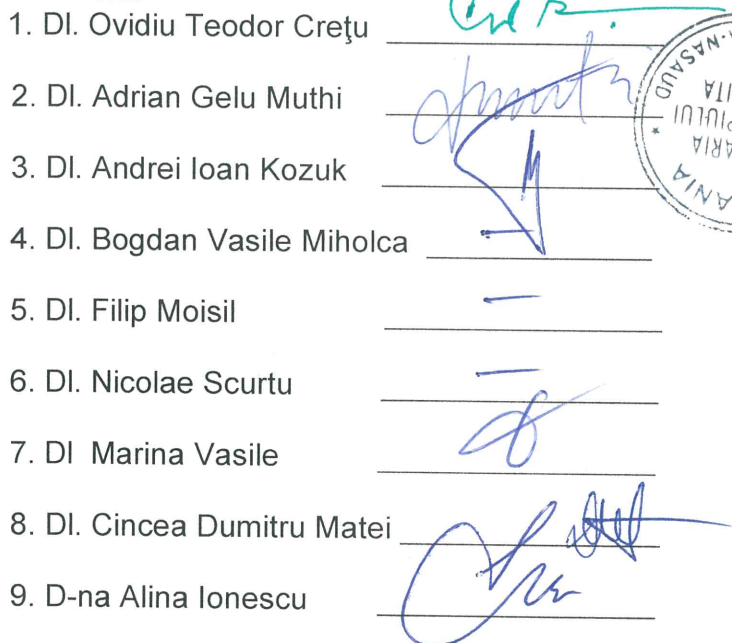 1. Dl. Ovidiu Teodor Creţu
2. Dl. Adrian Gelu Muthi
3. Dl. Andrei Ioan Kozuk
4. Dl. Bogdan Vasile Miholca –
5. Dl. Filip Moisil –
6. Dl. Nicolae Scurtu –
7. Dl Marina Vasile
8. Dl. Cincea Dumitru Matei
9. D-na Alina Ionescu